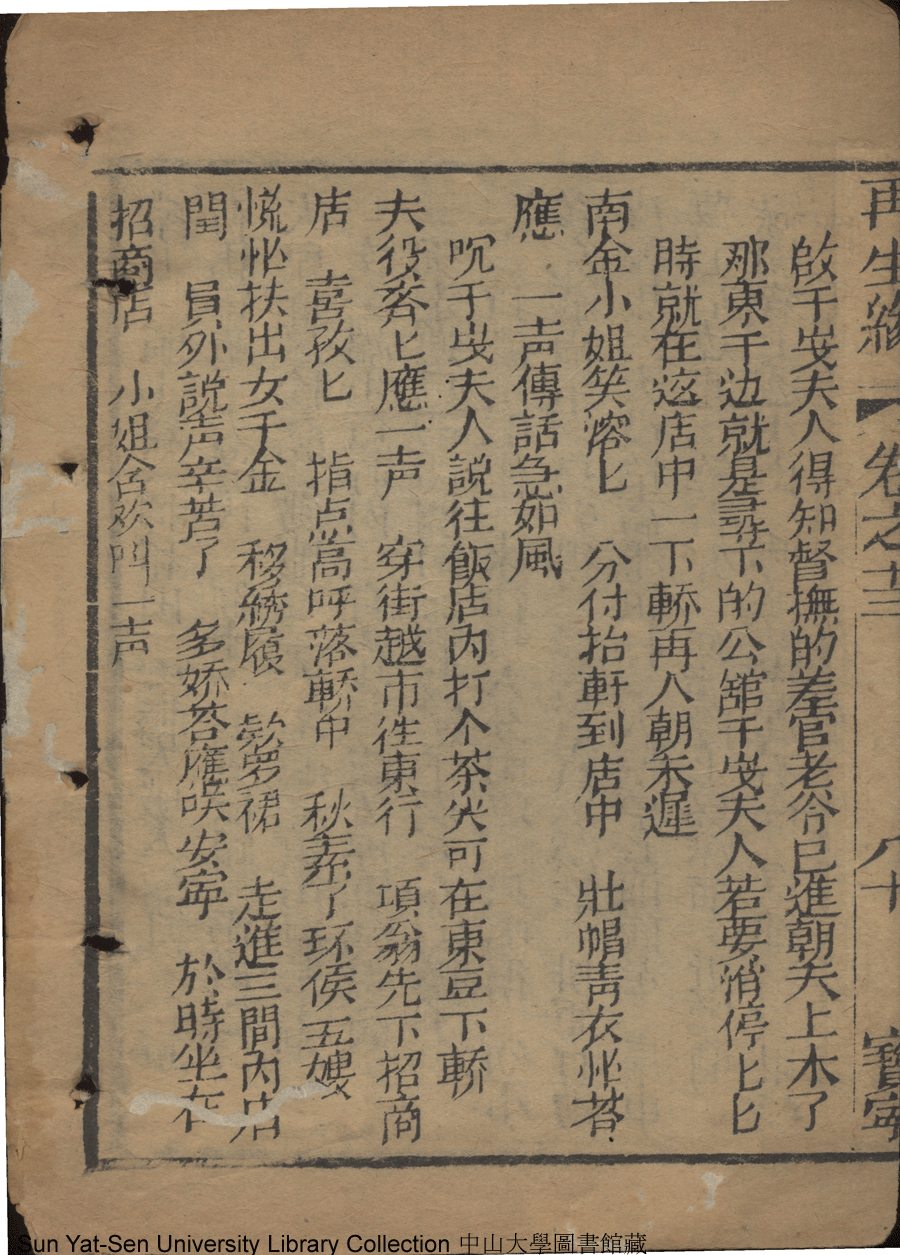 再生緣 卷之十三 八十 寶寧
啟千歲夫人得知督撫的差官老爷已進朝去上本了
那東千边就是尋下的公舘千歲夫人若要消停匕匕
時就在这店中一下轎再入朝未遲
南金小姐笑溶匕 分付抬軒到店中 壯帽靑衣忙荅
應 一声傳話急如風
吮千歲夫人說往飯店內打个茶尖可在東豆下轎
夫役齐匕應一声 穿街越市往東行 項翁先下招商
店 喜孜匕 指点高呼落轎中 秋素了环侯五嫂
慌忙扶出女千金 移綉履 欵罗裙 走進三間內店
閏 員外說声辛苦了 多娇荅應咲安寧 於時坐在
招商店 小姐含欢叫一声
Sun Yat-Sen University Library Collection 中山大學圖書館藏